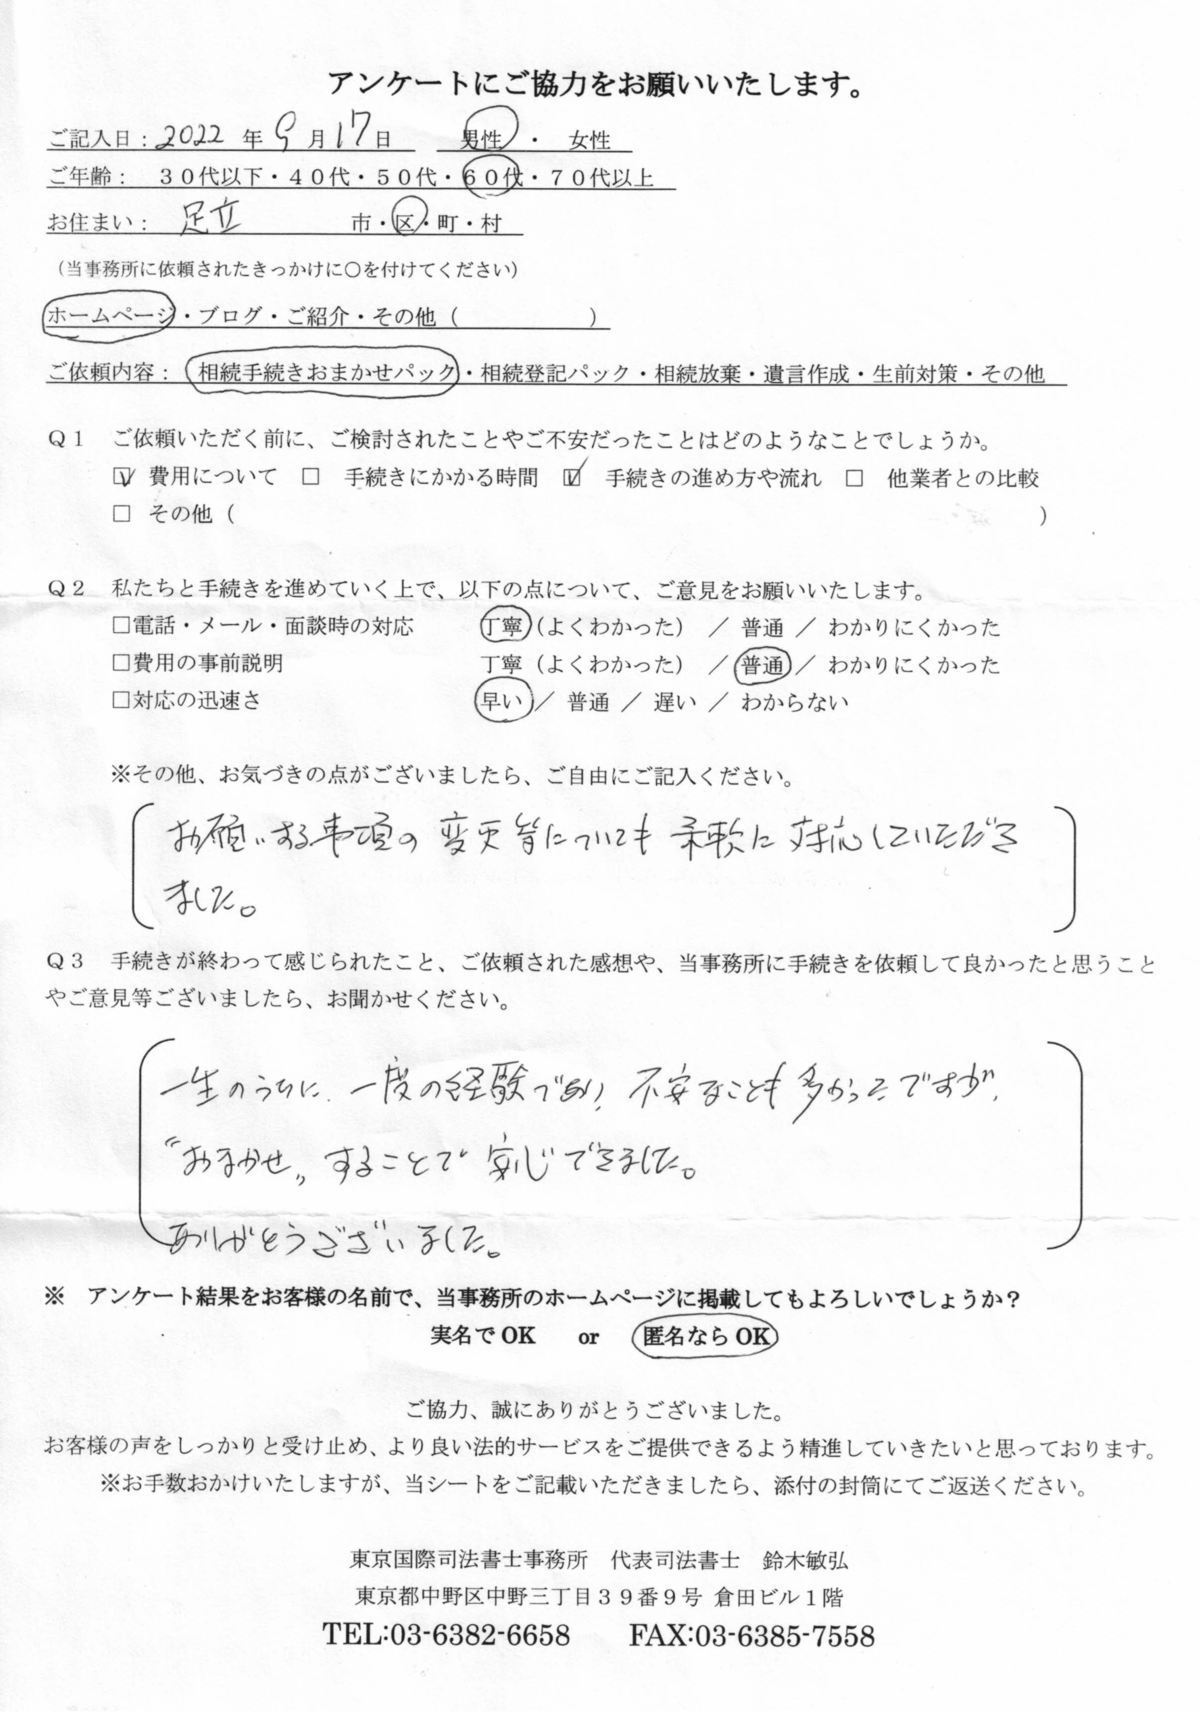 アンケートにご協力をお願いいたします。
ご記入日：2022 年 9 月 17 日 男性 ・ 女性
ご年齢： ３０代以下・４０代・５０代・６０代・７０代以上
お住まい： 足立 市・区・町・村
（当事務所に依頼されたきっかけに〇を付けてください）
ホームページ・ブログ・ご紹介・その他（ ）
ご依頼内容： 相続手続きおまかせパック・相続登記パック・相続放棄・遺言作成・生前対策・その他
Ｑ１ ご依頼いただく前に、ご検討されたことやご不安だったことはどのようなことでしょうか。
☑ 費用について □ 手続きにかかる時間 ☑ 手続きの進め方や流れ □ 他業者との比較
□ その他（ ）
Ｑ２ 私たちと手続きを進めていく上で、以下の点について、ご意見をお願いいたします。
□電話・メール・面談時の対応 丁寧（よくわかった） ／ 普通 ／ わかりにくかった
□費用の事前説明 丁寧（よくわかった） ／ 普通 ／ わかりにくかった
□対応の迅速さ 早い ／ 普通 ／ 遅い ／ わからない
※その他、お気づきの点がございましたら、ご自由にご記入ください。
お願いする事項の変更等についても柔軟に対応していただき
ました。
Ｑ３ 手続きが終わって感じられたこと、ご依頼された感想や、当事務所に手続きを依頼して良かったと思うこと
やご意見等ございましたら、お聞かせください。
一生のうちに、一度の経験であり、不安なことも多かったですが、
“おまかせ„することで安心できました。
ありがとうございました。
※ アンケート結果をお客様の名前で、当事務所のホームページに掲載してもよろしいでしょうか？
実名で OK or 匿名なら OK
ご協力、誠にありがとうございました。
お客様の声をしっかりと受け止め、より良い法的サービスをご提供できるよう精進していきたいと思っております。
※お手数おかけいたしますが、当シートをご記載いただきましたら、添付の封筒にてご返送ください。
東京国際司法書士事務所 代表司法書士 鈴木敏弘
東京都中野区中野三丁目３９番９号 倉田ビル１階
TEL:03-6382-6658 FAX:03-6385-7558